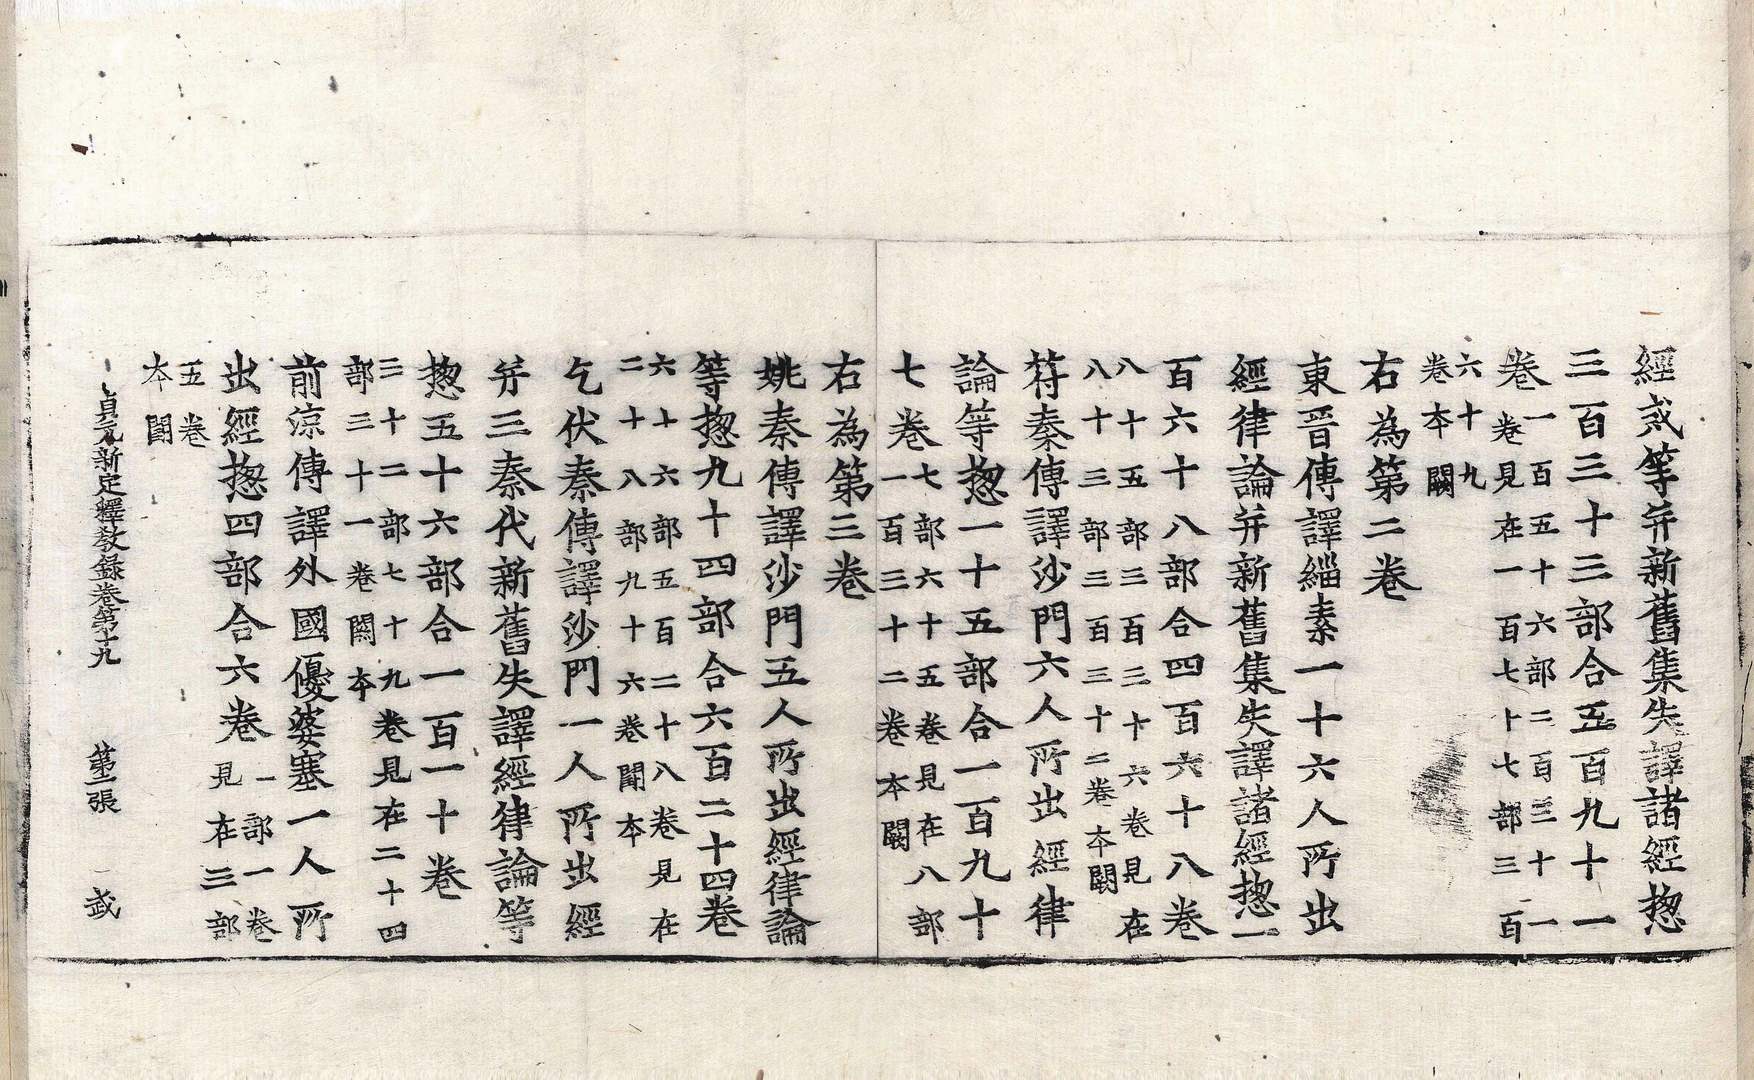 經戒等并新舊集失譯諸經揔
三百三十三部合五百九十一
卷
一百五十六部二百三十一
卷見在一百七十七部三百
六十九
卷本闕
右為第二卷
東晉傳譯緇素一十六人所出
經律論并新舊集失譯諸經揔一
百六十八部合四百六十八卷
八十五部三百三十六卷見在
八十三部三百三十二卷本闕
苻秦傳譯沙門六人所出經律
論等揔一十五部合一百九十
七卷
七部六十五卷見在八部
一百三十二卷本闕
右為第三卷
姚秦傳譯沙門五人所出經律論
等揔九十四部合六百二十四卷
六十六部五百二十八卷見在
二十八部九十六卷闕本
乞伏秦傳譯沙門一人所出經
并三秦代新舊失譯經律論等
揔五十六部合一百一十卷
三十二部七十九卷見在二十四
部三十一卷闕本
前涼傳譯外國優婆塞一人所
出經揔四部合六卷
一部一卷
見在三部
五卷
本闕
貞元新定釋教録卷第十九 第二張 武